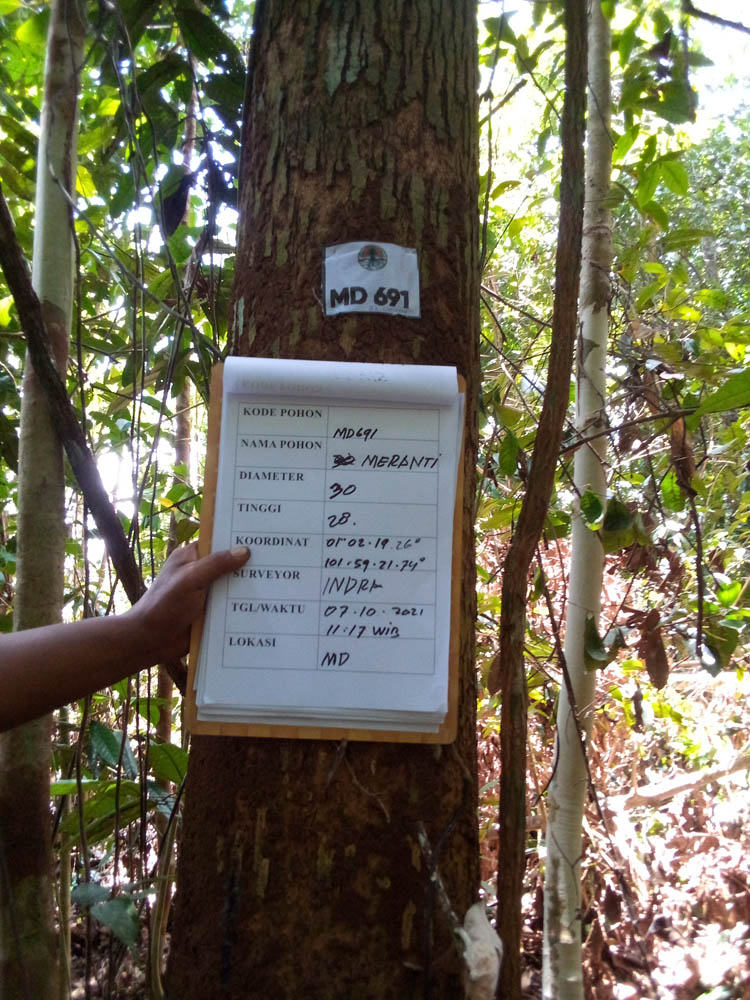 MD 691
KODE POHON MD691
NAMA POHON MERANTI
DIAMETER 30
TINGGI 28.
KOORDINAT 01°02·19.26°
101·59·21·74°
SURVEYOR INDRA
TGL/WAKTU 07·10·2021
11·17 WIB
LOKASI MD